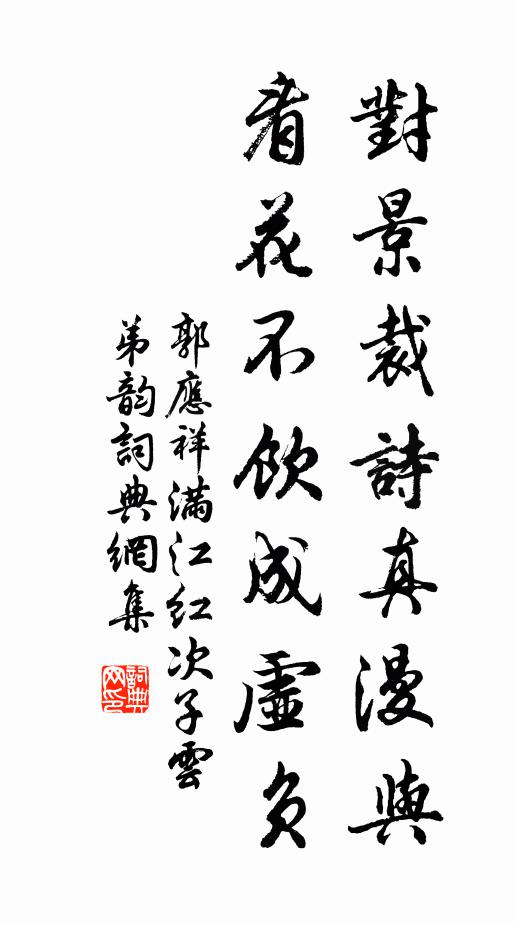 對景裁詩真漫與
看花不飲成虛負
郭應祥滿江紅次子雲
弟韵詞典網集
詞典网印